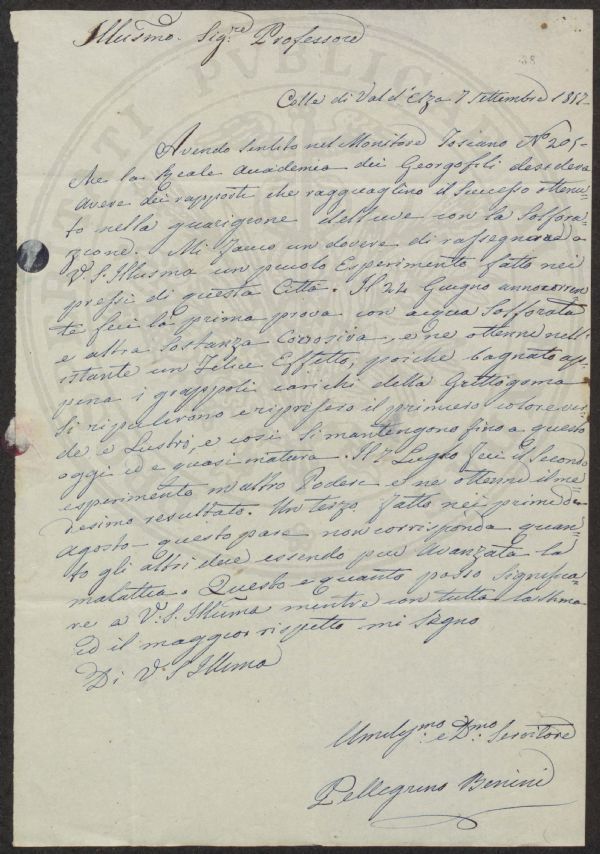 Illusmo. Sig.re Professore
38
Colle di Val d'Elza 7 Settembre 1852
Avendo Sentito nel Monitore Toscano No 205
che la Reale Accademia dei Georgofili desidera
avere dei rapporti che ragguaglino il Successo ottenu-
to nella guarigione dell'uve con la Solfora-
zione. Mi faccio un dovere di rassegnare a
V. S. Illusma un piccolo Esperimento fatto nei
pressi di questa Città. Il 24 Giugno anno corren
te feci la prima prova con acqua Solforata
e altra Sostanza Corrosiva, e ne ottenne nell'i
stante un Felice Effetto, poiche bagnato ap-
pena i grappoli carichi della Crittogama
Si ripulirono e ripresero il primiero colore ver-
de e Lustro, e così Si mantengono fino a questo
oggi ed e quasi matura. Il 7 Luglio feci il Secondo
esperimento in altro Podere e ne ottenni il me
desimo resultato. Un terzo fatto nei primi di
Agosto questo pare non corrisponda quan-
to gli altri due essendo più avanzata la
malattia. Questo e quanto posso Significa-
re a V. S. Illūma mentre con tutta la Stima
ed il maggior rispetto mi Segno
Di V. S Illūma
Umiliss.mo e D.mo Servitore
Pellegrino Benini
PVBLICA